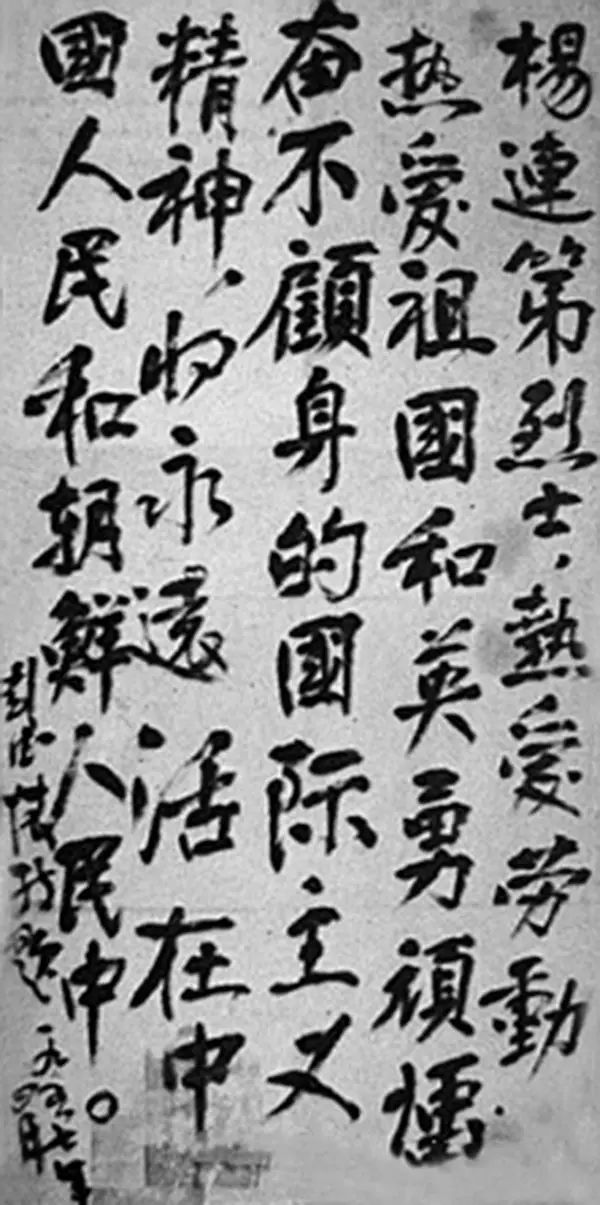 楊連第烈士，熱愛劳動
热愛祖國和英勇頑強
奋不顧身的國际主义
精神，将永遠活在中
國人民和朝鮮人民中。
彭德懷敬题 一九五七年
四月